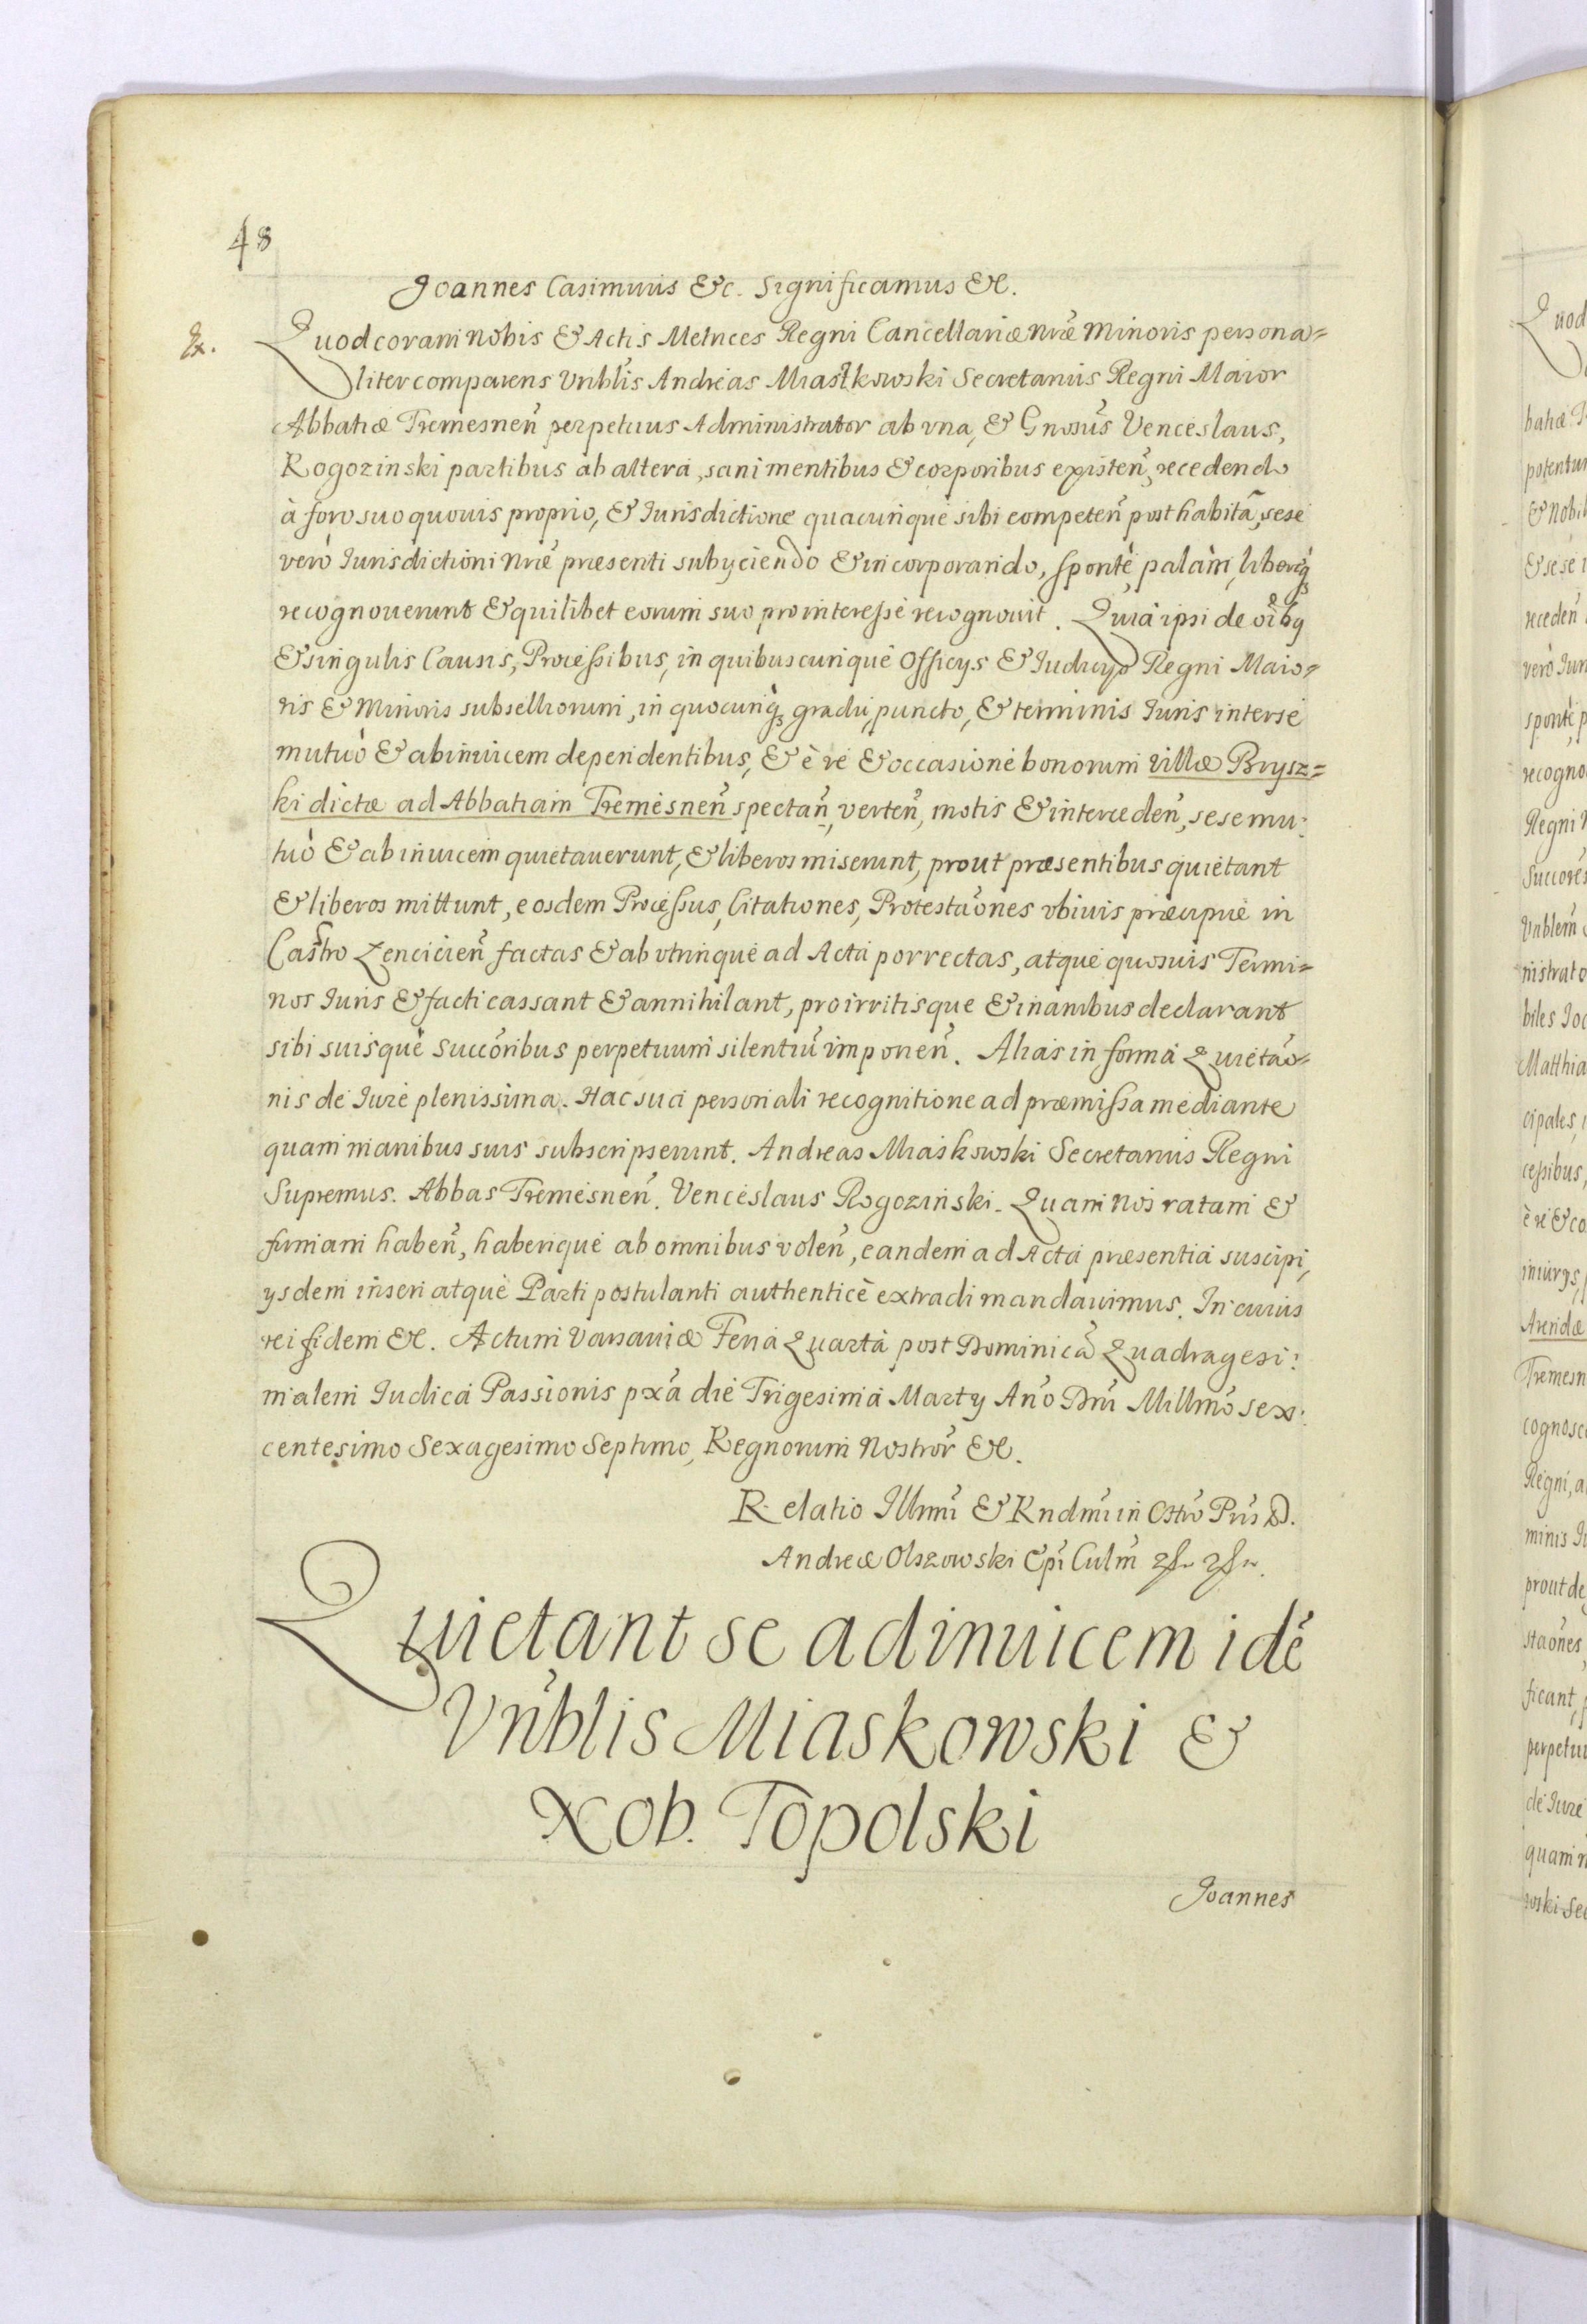 48
Joannes Casimirus &c. Significamus &c.
Ex. Quod coram Nobis & Actis Metrices Regni Cancellariæ Nr̃æ Minoris persona=
liter comparens Vnẽblis Andreas Miaskowski Secretarius Regni Maior
Abbatiæ Tremesneñ perpetuus Administrator ab vna, & Gnosũs Venceslaus,
Rogozinski partibus ab altera, sani mentibus & corporibus existeñ, recedendo
à foro suo quouis proprio, & Iurisdictione quacunque sibi competeñ post habitã, sese
verò Iurisdictioni Nr̃æ præsenti subyciendo & incorporando, spontè, palàm, liberèq;
recognouerunt & quilibet eorum suo pro interesse recognouit. Quia ipsi de oĩbq
& singulis Causis, Processibus, in quibuscunque Officys & Iudicys Regni Maio=
ris & Minoris subselliorum, in quocunq; gradu, puncto, & terminis Iuris inter se
mutuò & abinuicem dependentibus, & è re & occasione bonorum villæ Brysz=
ki dictæ ad Abbatiam Tremesneñ spectañ, verteñ, motis & intercedeñ, sese mu:
tuò & abinuicem quietauerunt, & liberos miserunt, prout præsentibus quietant
& liberos mittunt, eosdem Processus, Citationes, Protestaõnes vbiuis præcipue in
Castro Lencicieñ factas & ab vtrinque ad Acta porrectas, atque quosuis Termi=
nos Iuris & facti cassant & annihilant, pro irritisque & inanibus declarant
sibi suisque Succõribus perpetuum silentiũ imponeñ. Alias in forma Quietaõ=
nis de Iure plenissima. Hac sua personali recognitione ad præmissa mediante
quam manibus suis subscripserunt. Andreas Miaskowski Secretarius Regni
Supremus. Abbas Tremesneñ. Venceslaus Rogoziński. Quam Nos ratam &
firmam habeñ, haberique ab omnibus voleñ, eandem ad Acta præsentia suscipi,
ysdem inseri atque Parti postulanti authenticè extradi mandauimus. In cuius
rei fidem &c. Actum Varsauiæ Feria Quarta post Dominicã Quadragesi:
malem Iudica Passionis px̃a die Trigesima Marty Añо Dñi Millmõ sex:
centesimo Sexagesimo Septimo, Regnorum Nostror̃ &c.
Relatio Illmĩ & Rndmĩ in Chr̃o Pr̃is D.
Andreæ Olszowski Epĩ Culm̃
Quietant se adinuicem idẽ
Vnẽblis Miaskowski &
Nob. Topolski
Joannes